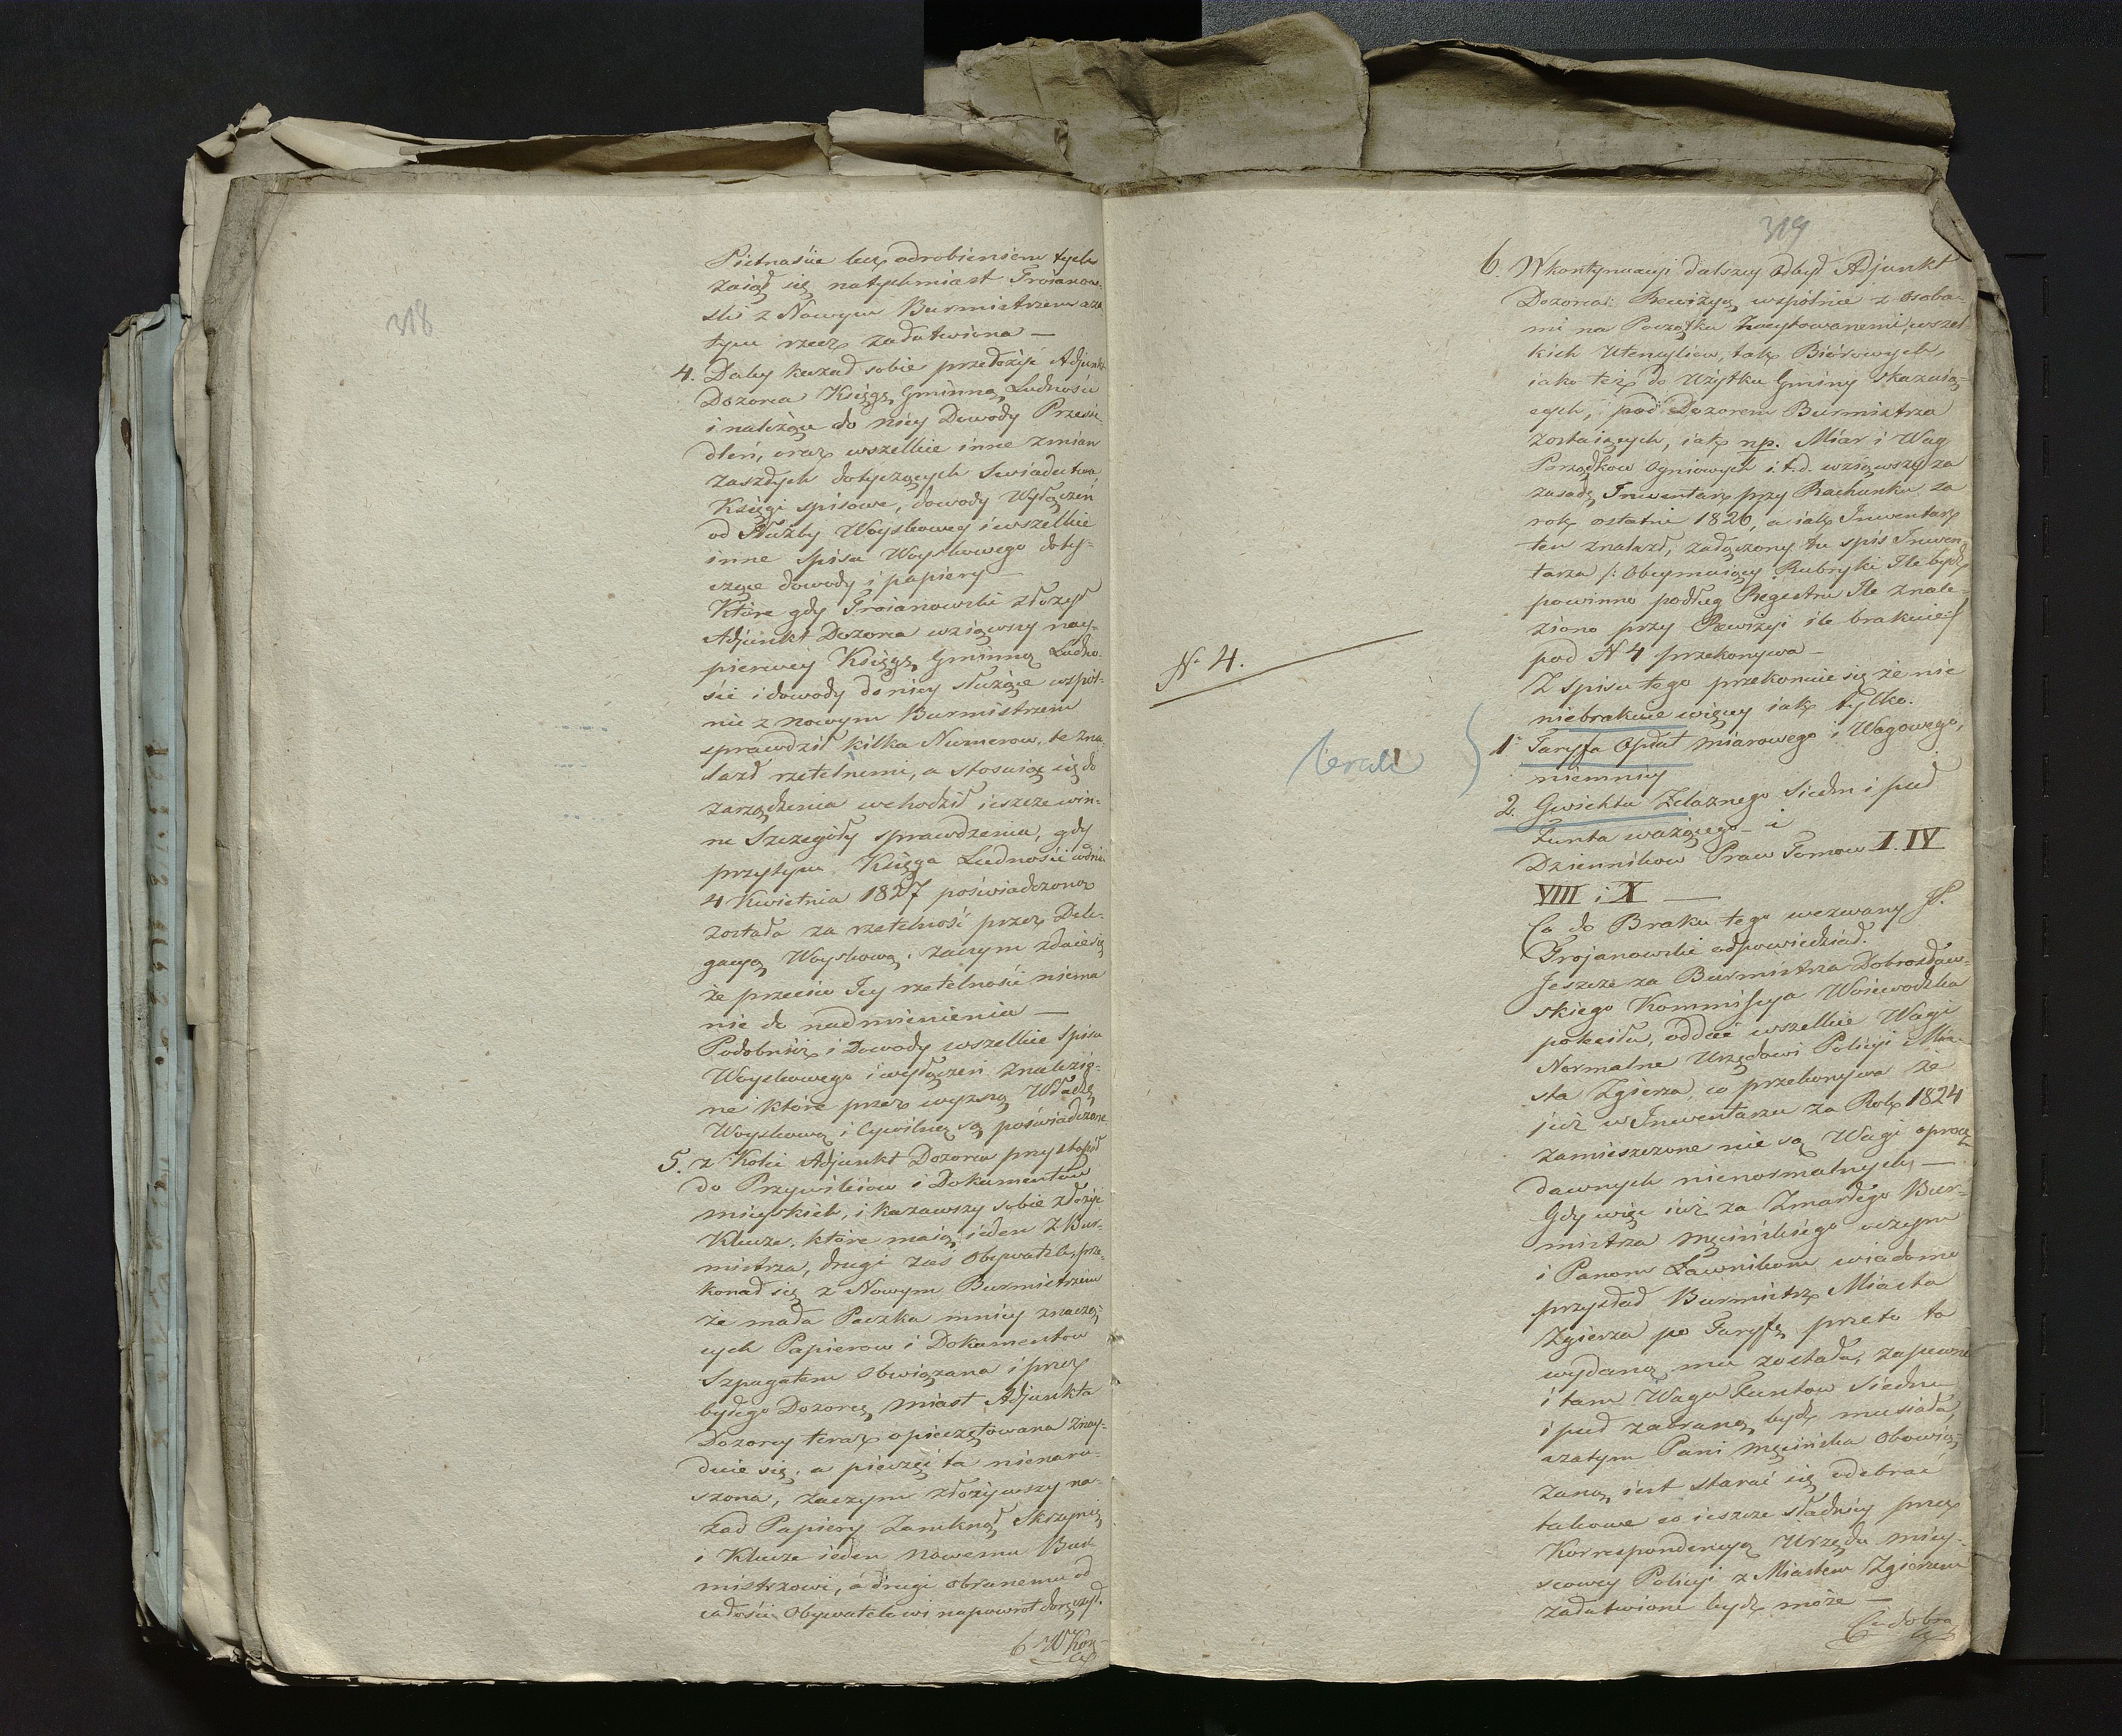 318
Pietnaście lecz odrobieniem tych
zaiął się natychmiast Troianow-
ski z Nowym Burmistrzem a za
tym rzecz załatwiona —
4. Daley kazał sobie przedożyć Adjunkt
Dozorca Księgę Gminną Ludności
i należące do niey Dowody Przesie-
dleń, oraz wszelkie inne zmian
zaszłych dotyczących Swiadectwa
Księgi spisowe, dowody Wyłączeń
od Służby Woyskowey i wszelkie
inne Spisu Woyskowego doty-
czące dowody i papiery —
Które gdy Troianowski złożył
Adjunkt Dozorca wziąwszy nay-
pierwey Księgę Gminną Ludno-
ści i dowody do niey służące wspól-
nie z nowym Burmistrzem
sprawdził kilka Numerow, te zna-
lazł rzetelnemi, a stosuiąc się do
zarządzenia wchodził ieszcze w in-
ne Szczegóły sprawdzenia, gdy
przytym Księga Ludności w dniu
4 Kwietnia 1827 poświadczoną
została za rzetelność przez Dele-
gacyą Woyskową, zaczym zdaie się
że przeciw Jey rzetelności niema
nic do nadmienienia —
Podobnież i Dowody wszelkie Spisu
Woyskowego i wyłączeń znalezio-
ne które przez wyzszą Władzę
Woyskową i Cywilną są poświadczone
5. z Kolei Adjunkt Dozorca przystąpił
do Przywileiow i Dokumentów
mieyskich, i kazawszy sobie złożyć
Klucze, które maią ieden z Bur-
mistrza, drugi zaś Obywatele, prze-
konał się z Nowym Burmistrzem
że mała Paczka mniey znaczą-
cych Papierow i Dokumentow
Szpagatem obwiązana i przez
byłego Dozorcę miast Adjunkta
Dozorcy teraz opieczętowana znay-
duie się, a pieczęć ta nienaru-
szona, zaczym złożywszy na-
zad Papiery Zamknął Skrzynię
i Klucze ieden nowemu Bur-
mistrzowi, a drugi obranemu od
całości Obywatelowi napowrot doręczył.
6 W Kon-
319
6. W kontynuacyi dalszey odbył Adjunkt
Dozorca Rewizyą wspólnie z osoba-
mi na Początku zacytowanemi, wszel-
kich Utensyliow, tak Biórowych,
iako też do Użytku Gminy skazuią-
cych, pod Dozorem Burmistrza
zostaiących, iak np. Miar i Wag
Porządkow Ogniowych i.t.d. wziąwszy za
zasadę Inwentarz przy Rachunku za
rok ostatni 1826, a iak Inwentarz
ten znalazł, załączony tu spis Inwen-
tarza /: Obeymuiący Rubryki Ile być
powinno podług Regestru Ile znale-
ziono przy Rewizyi ile brakuie:/
pod N 4 przekonywa —
N. 4.
Z spisu tego przekonuie się że nic
niebrakuie więcey iak tylko.
1. Taryffa Opłat miarowego i Wagowego,
niemniey
2. Gwichtu Zelaznego Siedm i puł
Funta ważącego — i
Dzienników Praw Tomow I. IV
VIII i X —
Co do Braku tego wezwany JP.
Trojanowski odpowiedział.
Jeszcze za Burmistrza Dobrosław-
skiego Kommissya Woiewodzka
poleciła, oddać wszelkie Wagi
Normalne Urzędowi Policyi Mia-
sta Zgierza, co przekonywa że
już w Inwentarzu za Rok 1824
zamieszczone nie są Wagi oprocz
dawnych nienormalnych —
Gdy więc iuż za Zmarłego Bur-
mistrza Męcińskiego oczym
i Panom Ławnikom wiadomo
przysłał Burmistrz Miasta
Zgierza po Taryfę przeto ta
wydaną mu została, zapewne
i tam Waga Funtow Siedm
i puł zabraną być musiała,
azatym Pani Męcińska Obowią-
zaną iest starać się odebrać
takowe co ieszcze snadniey przez
Korrespondencyą Urzędu miey-
scowey Policyi z Miastem Zgierzem
załatwione być może —
Co dobra